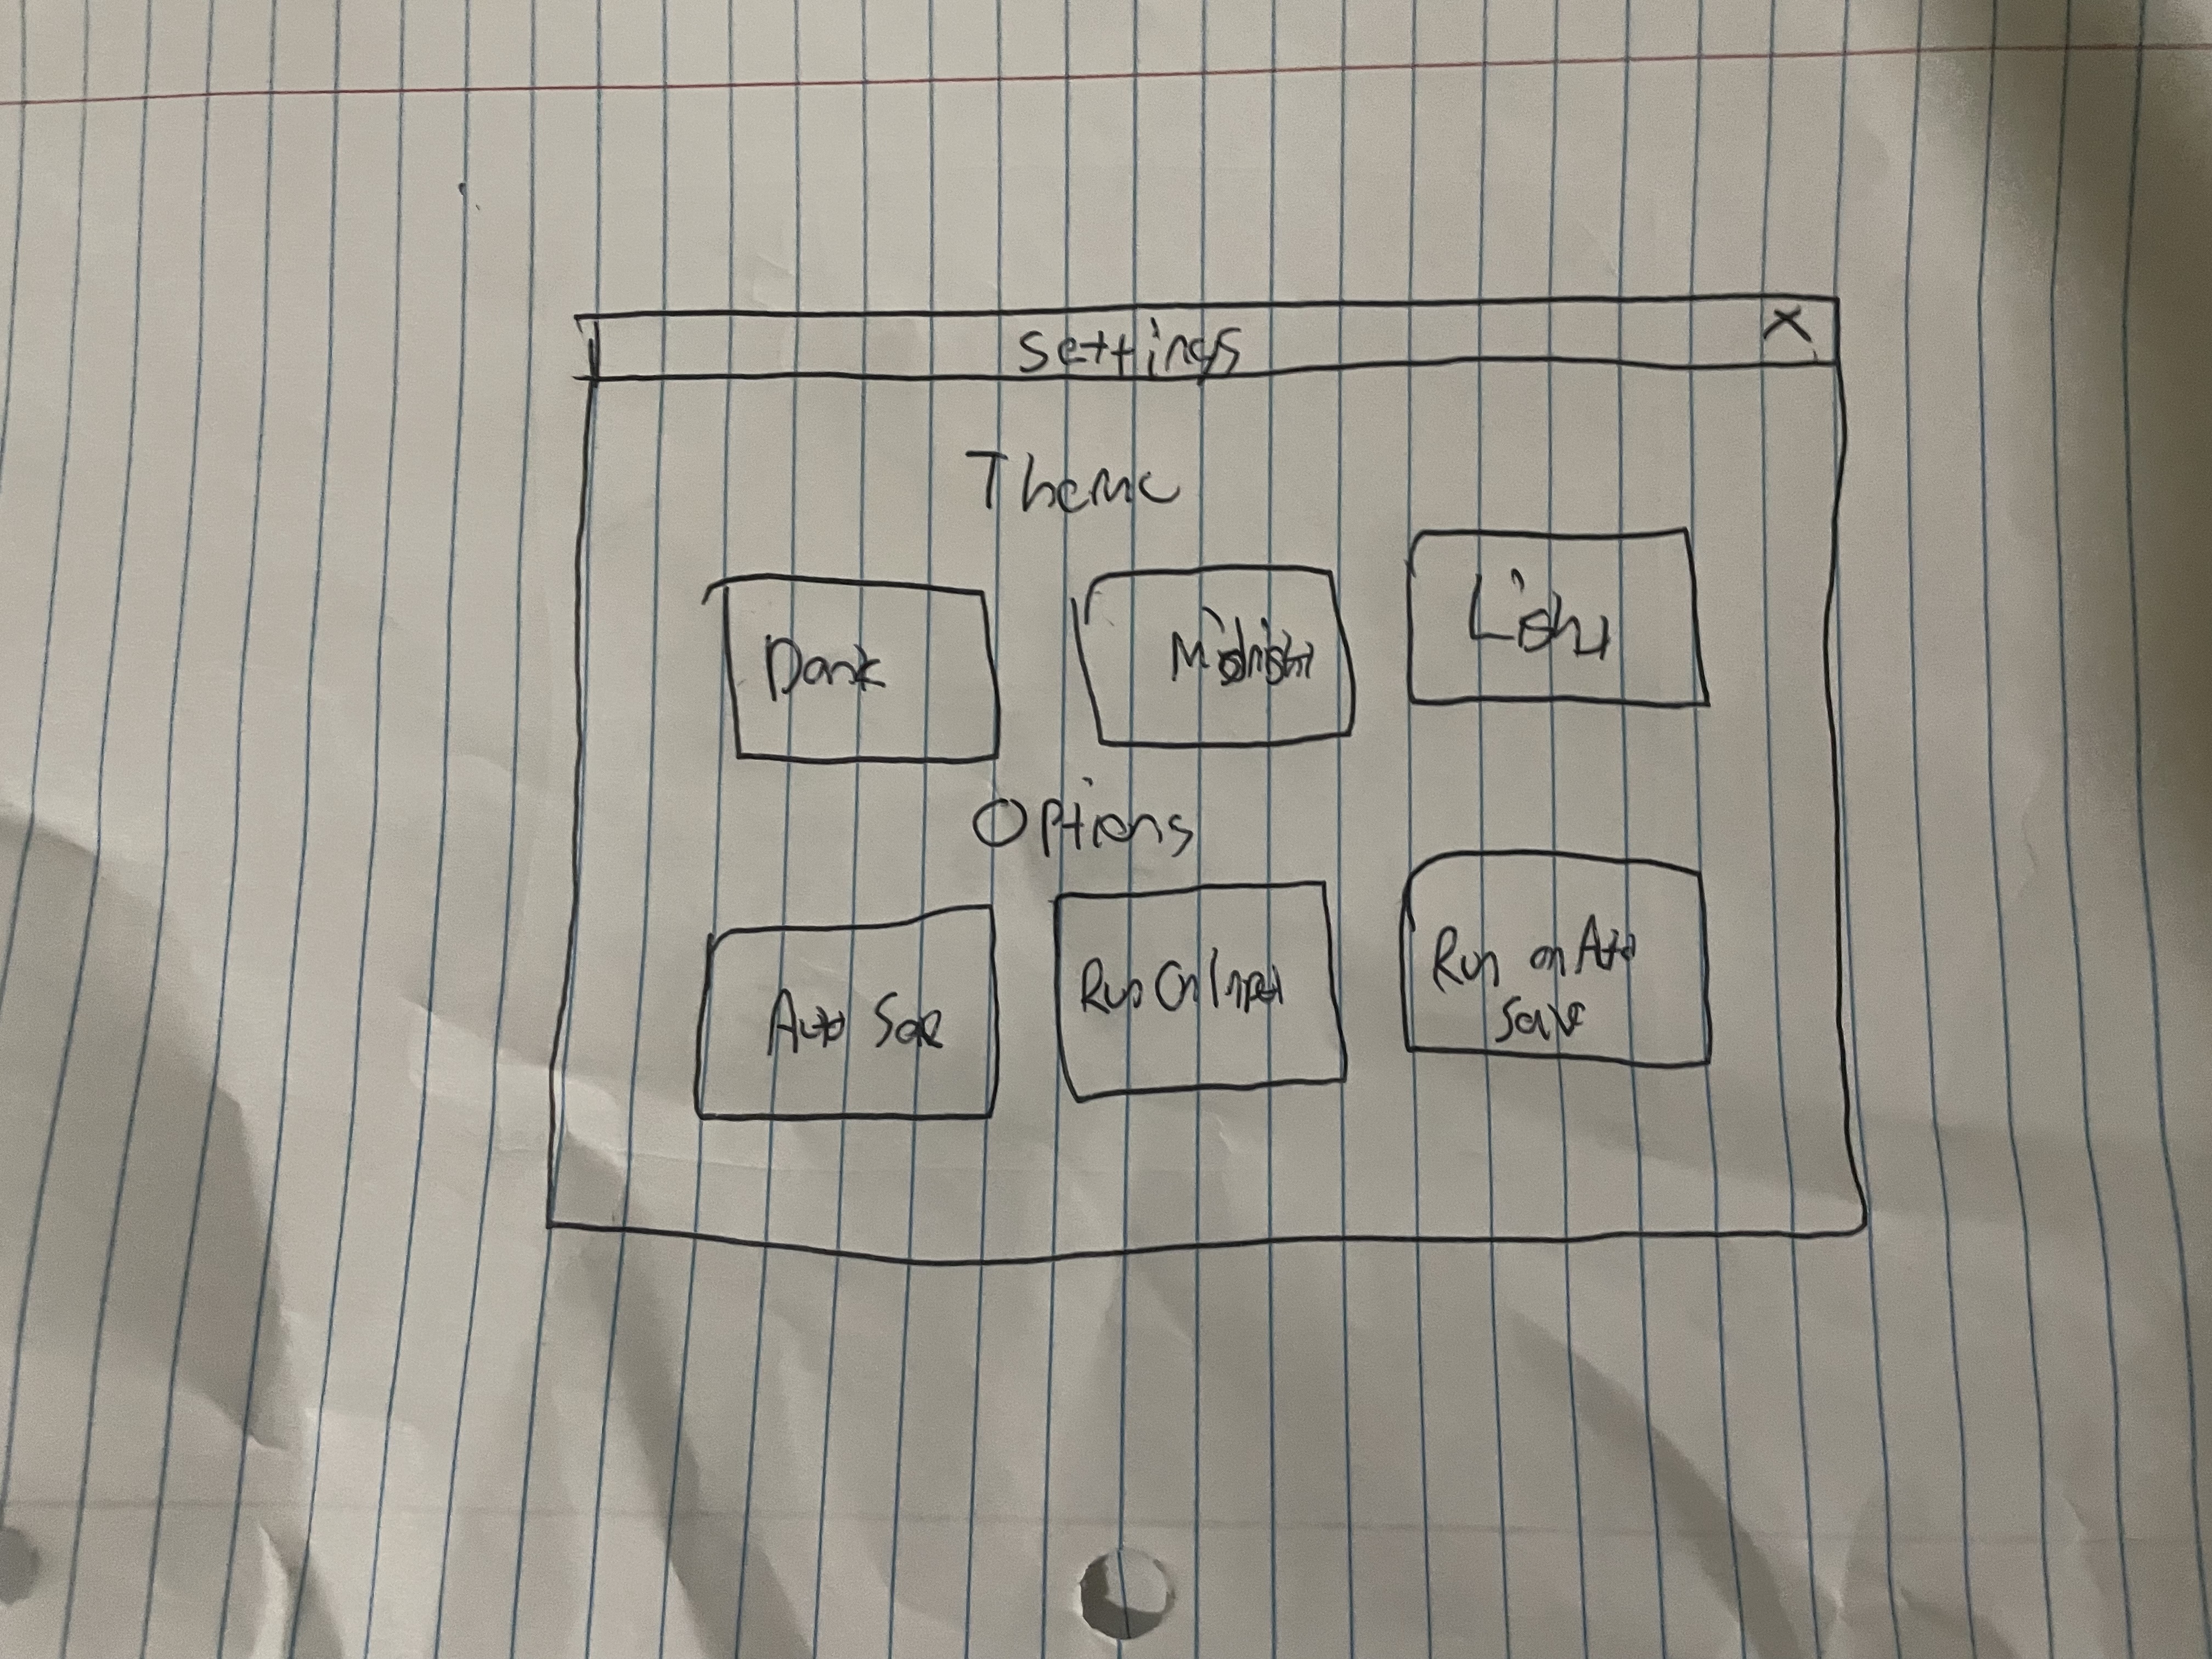 Settings X
Theme
Dark Midnight Light
Options
Auto Save Run On Input Run on Auto
Save